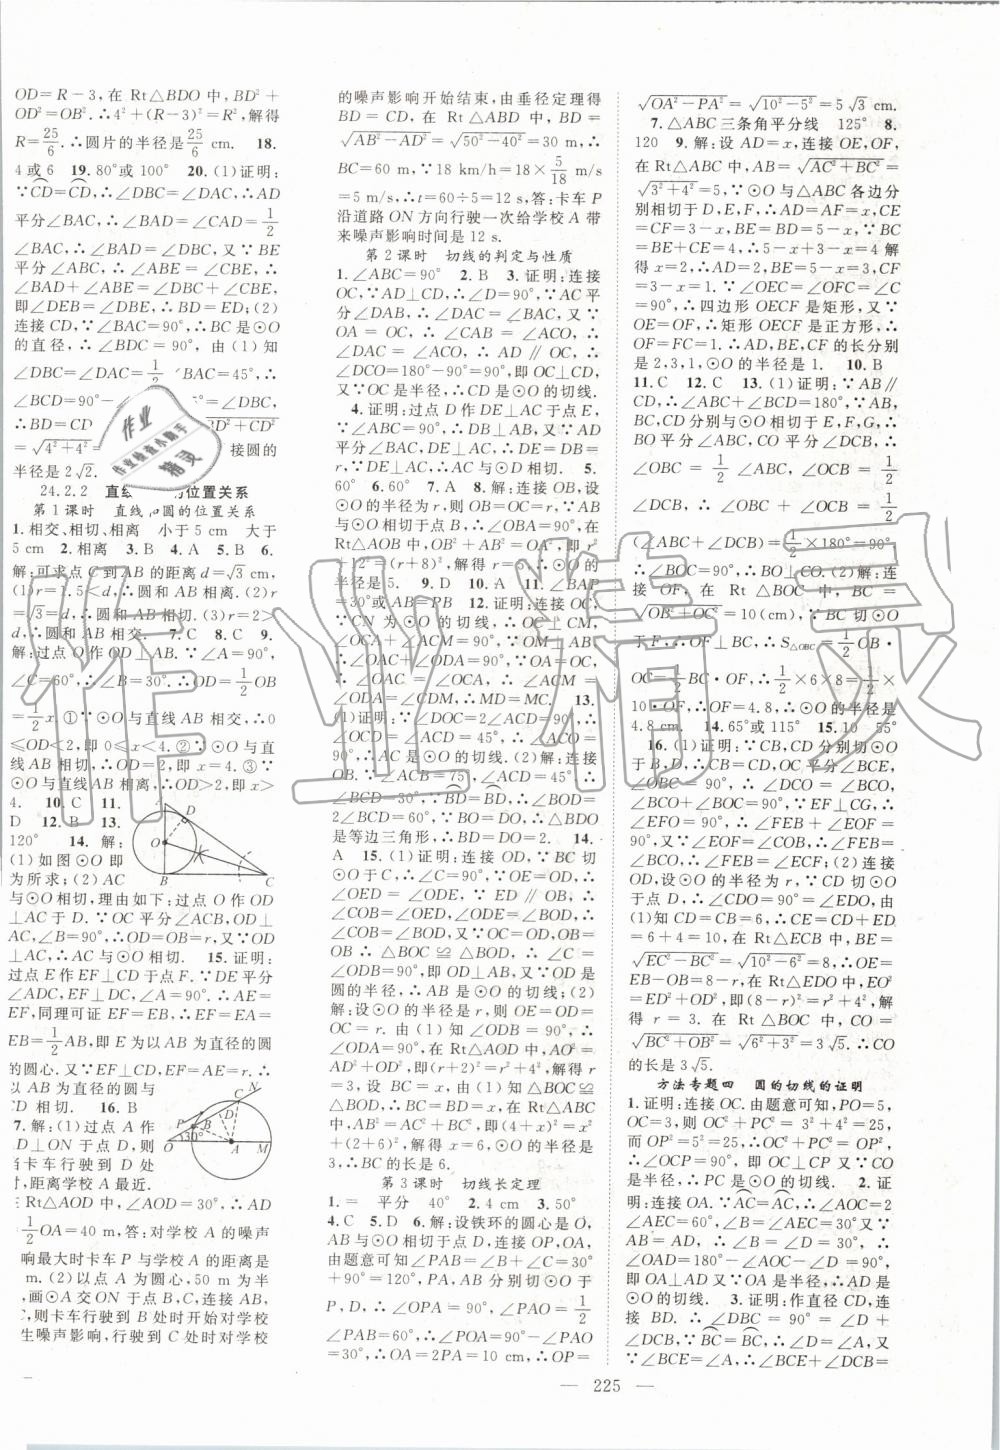 OD=R-3,在 Rt△BDO 中,BD²+
OD²=OB²,∴4²+(R-3)²=R²,解得
R=25/6.∴圆片的半径是25/6 cm. 18.
4或6 19.80°或100° 20.(1)证明:
∵CD=CD,∴∠DBC=∠DAC,∴AD
平分∠BAC,∴∠BAD=∠CAD=1/2
∠BAC,∴∠BAD=∠DBC,又∵BE
平分∠ABC,∴∠ABE=∠CBE,∴
∠BAD+∠ABE=∠DBC+∠CBE,
即∠DEB=∠DBE,∴BD=ED;(2)
连接CD,∵∠BAC=90°,∴BC是⊙O
的直径,∴∠BDC=90°,由(1)知
∠DBC=∠DAC=1/2∠BAC=45°,∴
∠BCD=90°-∠DBC,
∴BD=CD BD²+CD²
=√4²+4²= 接圆的
半径是2√2.
24.2.2 直线 的位置关系
第1课时 直线 圆的位置关系
1.相交、相切、相离 小于5 cm 大于
5 cm 2.相离 3.B 4.A 5.B 6.
解:可求点C到AB的距离d=√3 cm.
(1)r=1.5<d,∴圆和AB相离.(2)r
=√3=d,∴圆和AB相切.(3)r=2>
d,∴圆和AB相交. 7.C 8.C 9.
解:过点O作OD⊥AB.∵∠A=90°,
∠C=60°,∴∠B=30°.∴OD=1/2OB
=1/2x ①∵⊙O与直线AB相交,∴0
≤OD<2.即0≤x<4.②∵⊙O与直
线AB相切,∴OD=2,即x=4.③∵
⊙O与直线AB相离,∴OD>2,即x>
4. 10.C 11.
D 12.B 13.
120° 14.解:
(1)如图⊙O即
为所求;(2)AC
与⊙O相切,理由如下:过点O作OD
⊥AC于点D.∵OC平分∠ACB,OD⊥
AC,∠B=90°,∴OD=OB=r,∴AC
与⊙O相切. 15.证明:
过点E作EF⊥CD于点F.∵DE平分
∠ADC,EF⊥CD,∠A=90°,∴AE=
EF,同理可证EF=EB,∴EF=EA=
EB=1/2AB,即E为以AB为直径的圆
的圆心.∴以AB为直径的圆与
CD相切. 16.B
17.解:(1)过点A作
AD⊥ON于点D,则
当卡车行驶到D处
时距学校A最近.
在Rt△AOD中,∠AOD=30°,∴AD
=1/2OA=40 m.答:对学校A的噪声
影响最大时卡车P与学校A的距离是
m.(2)以点A为圆心,50 m为半
画⊙A交ON于点B、C,连接AB,
C,则卡车行驶到B处时开始对学校
生噪声影响,行驶到C处时对学校
的噪声影响开始结束,由垂径定理得
BD=CD,在Rt△ABD中,BD=
√AB²-AD²=√50²-40²=30 m,∴
BC=60 m,∵18 km/h=18×5/18 m/s=
5 m/s,∴t=60÷5=12 s,答:卡车P
沿道路ON方向行驶一次给学校A带
来噪声影响时间是12 s.
第2课时 切线的判定与性质
1.∠ABC=90° 2.B 3.证明:连接
OC,∵AD⊥CD,∴∠D=90°,∵AC平
分∠DAB,∴∠DAC=∠CAB,又∵
OA=OC,∴∠CAB=∠ACO,∴
∠DAC=∠ACO,∴AD∥OC,∴
∠DCO=180°-∠D=90°,即OC⊥CD,
又∵OC是半径,∴CD是⊙O的切线.
4.证明:过点D作DE⊥AC于点E,
∵∠ABC=90°,∴DB⊥AB,又∵AD
平分∠BAC,∴DE=DB,又∵DB是
半径,∴AC与⊙D相切. 5.
60° 6.60° 7.A 8.解:连接OB,设
⊙O的半径是r,则OB=OC=r,∵AB
与⊙O相切于点B,∴∠OBA=90°,在
Rt△AOB中,OB²+AB²=OA²,即r²
+12²=(r+8)²,解得r=5,∴⊙O的
半径是5. 9.D 10.A 11.∠BAP
=30°或AB=PB 12.证明:连接OC,
∵CN为⊙O的切线,∴OC⊥CM,
∠OCA+∠ACM=90°,∵OM⊥AB,
∴∠OAC+∠ODA=90°,∵OA=OC,
∴∠OAC=∠OCA,∴∠ACM=
∠ODA=∠CDM,∴MD=MC. 13.
(1)证明:∵∠DOC=2∠ACD=90°,
∠OCD=∠ACD,∴ (2)解:连接
OB.∵∠ACB=75°,∠ACD=45°,∴
∠BCD=30°,∵BD=BD,∴∠BOD=
2∠BCD=60°,∵OD=OB,∴△BDO
是等边三角形,∴BD=DO=2. 14.
A 15.(1)证明:连接OD,∵BC切
⊙O于C,∴∠C=90°,∵OE=OD,∴
∠OED=∠ODE,∵DE∥OB,∴
∠COB=∠OED,∠ODE=∠BOD,∴
∠COB=∠BOD,∵OC=OD,OB=
OB ∴△BOC≌△BOD,∴∠BDO=
∠C=90°,即OD⊥AB,又∵OD是
圆的半径,∴AB是⊙O的切线;(2)
解:设⊙O的半径是r,则OE=OD=
OC=r.由(1)得OD⊥AB,∴∠ADO
=90°,在Rt△ADO中,AO²=
OD²+AD²,即(r+2)²=r²+4²,解得r
=3,∴AC=2+2×3=8,∵△BOC≌
△BOD,∴BC=BD,设BC=x,在
Rt△ABC中,∠C=90°,
AB²=AC²+BC²,即(4+x)²=x²
+(2+6)²,解得x=6,∵⊙O的半径是
3,∴BC的长是6.
第3课时 切线长定理
1.= 平分 40° 2.4 cm 3.50°
4.C 5.D 6.解:设铁环的圆心是O,
与三角尺相切于点P,D,连接OP,OA,
由题意可知∠PAB=∠C+∠B=30°
+90°=120°,PA,AB分别切⊙O于
P,D,∴∠OPA=90°,∠PAO=1/2
∠PAB=60°,∴∠POA=90°-∠PAO
=30°,∴OA=2PA=10 cm,∴OP=
√OA²-PA²=√10²-5²=5√3 cm.
7.△ABC三条角平分线 125° 8.
120 9.解:设AD=x,连接OE,OF,
在Rt△ACB中,AB=√AC²+BC²=
√3²+4²=5,∵⊙O与△ABC各边分
别相切于D,E,F,∴AD=AF=x,CE
=CF=3-x,BE=BD=5-x,又∵
BE+CE=BC,∴5-x+3-x=4解
得x=2,∴AD=2,BE=5-2=3,CF
=3-x=1.∵∠OEC=∠OFC=∠C
=90°,∴四边形OECF是矩形,又∵
OE=OF,∴矩形OECF是正方形,∴
OF=FC=1.∴AD,BE,CF的长分别
是2,3,1,⊙O的半径是1. 10.B
11.C 12.C 13.(1)证明:∵AB∥
CD,∴∠ABC+∠BCD=180°,∵AB,
BC,CD分别与⊙O相切于E,F,G,∴
BO平分∠ABC,CO平分∠DCB,∴
∠OBC=1/2∠ABC,∠OCB=1/2
∠DCB,∴∠OBC+∠OCB=1/2
(∠ABC+∠DCB)=1/2×180°=90°,
∴∠BOC=90°,∴BO⊥CO.(2)解:连
接OF,∵∠BOC=90°,∴BC=
√OB²+OC²=10(cm),∵BC切⊙O
于F,∴OF⊥BC,∴S△OBC=1/2OB·
OC=1/2BC·OF,∴1/2×6×8=1/2×
10·OF,∴OF=4.8,∴⊙O的半径是
4.8 cm. 14.65°或115° 15.10 55°
16.(1)证明:∵CB,CD分别切⊙O
于点B,D,∴OC平分∠BCE,
∠OBC=90°,∴∠BCE=2∠BCO,
∠BCO+∠BOC=90°,∵EF⊥CG,
∴∠FEB+∠EOF=90°,∵∠EOF=
∠BOC,∴∠FEB=∠BCO,
∴∠BCE=2∠FEB;(2)连接
OD,设⊙O的半径为r,∵CE切⊙O
于点D,∴∠CDO=90°=∠EDO,由
(1)知CD=CB=6,∴CE=CD+ED
=6+4=10,在Rt△ECB中,BE=
√EC²-BC²=√10²-6²=8,∴OE=
EB-OB=8-r,在Rt△EDO中,EO²
=ED²+OD²,即(8-r)²=r²+4²,解得
r=3.在Rt△BOC中,OC=
√BC²+OB²=√6²+3²=3√5.∴CO
的长是3√5.
方法专题四 圆的切线的证明
1.证明:连接OC.由题意可知,PO=5,
OC=3,则OC²+PC²=3²+4²=25,
而OP²=5²=25,∴OC²+PC²=OP²,
∴∠OCP=90°,∴OC⊥CP,∵OC是
半径,∴PC是⊙O的切线. 2.证明:
连接OA.∵AC=AC,∴∠AOC=2
∠AEC=60°,∵∠AEC=30°,又∵
∠D=30°,∴∠AOC+∠D=90°,
∴∠OAD=180°-∠AOC-∠D=90°,
即OA⊥AD,又∵OA是半径,∴AD是
⊙O的切线. 3.证明:作直径CD,连接
BD.∴∠DBC=90°=∠D+
∠BCD.∵BC=BC,∴∠D=∠A,又∵
∠BCE=∠A,∴∠D=∠BCE,∴
225
D
O
K
B
C
N
C
D
P
B
30°
O
A
M
作业
作业检查小助手
精灵
作业精灵